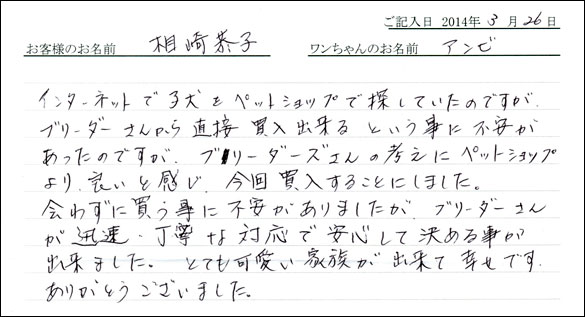 ご記入日 2014年 3 月 26 日
お客様のお名前 相崎恭子 ワンちゃんのお名前 アンビ
インターネットで子犬をペットショップで探していたのですが、
ブリーダーさんから直接買入出来るという事に不安が
あったのですが、ブリーダーズさんの考えにペットショップ
より、良いと感じ、今回買入することにしました。
会わずに買う事に不安がありましたが、ブリーダーさん
が迅速・丁寧な対応で安心して決める事が
出来ました。とても可愛い家族が出来て幸せです。
ありがとうございました。